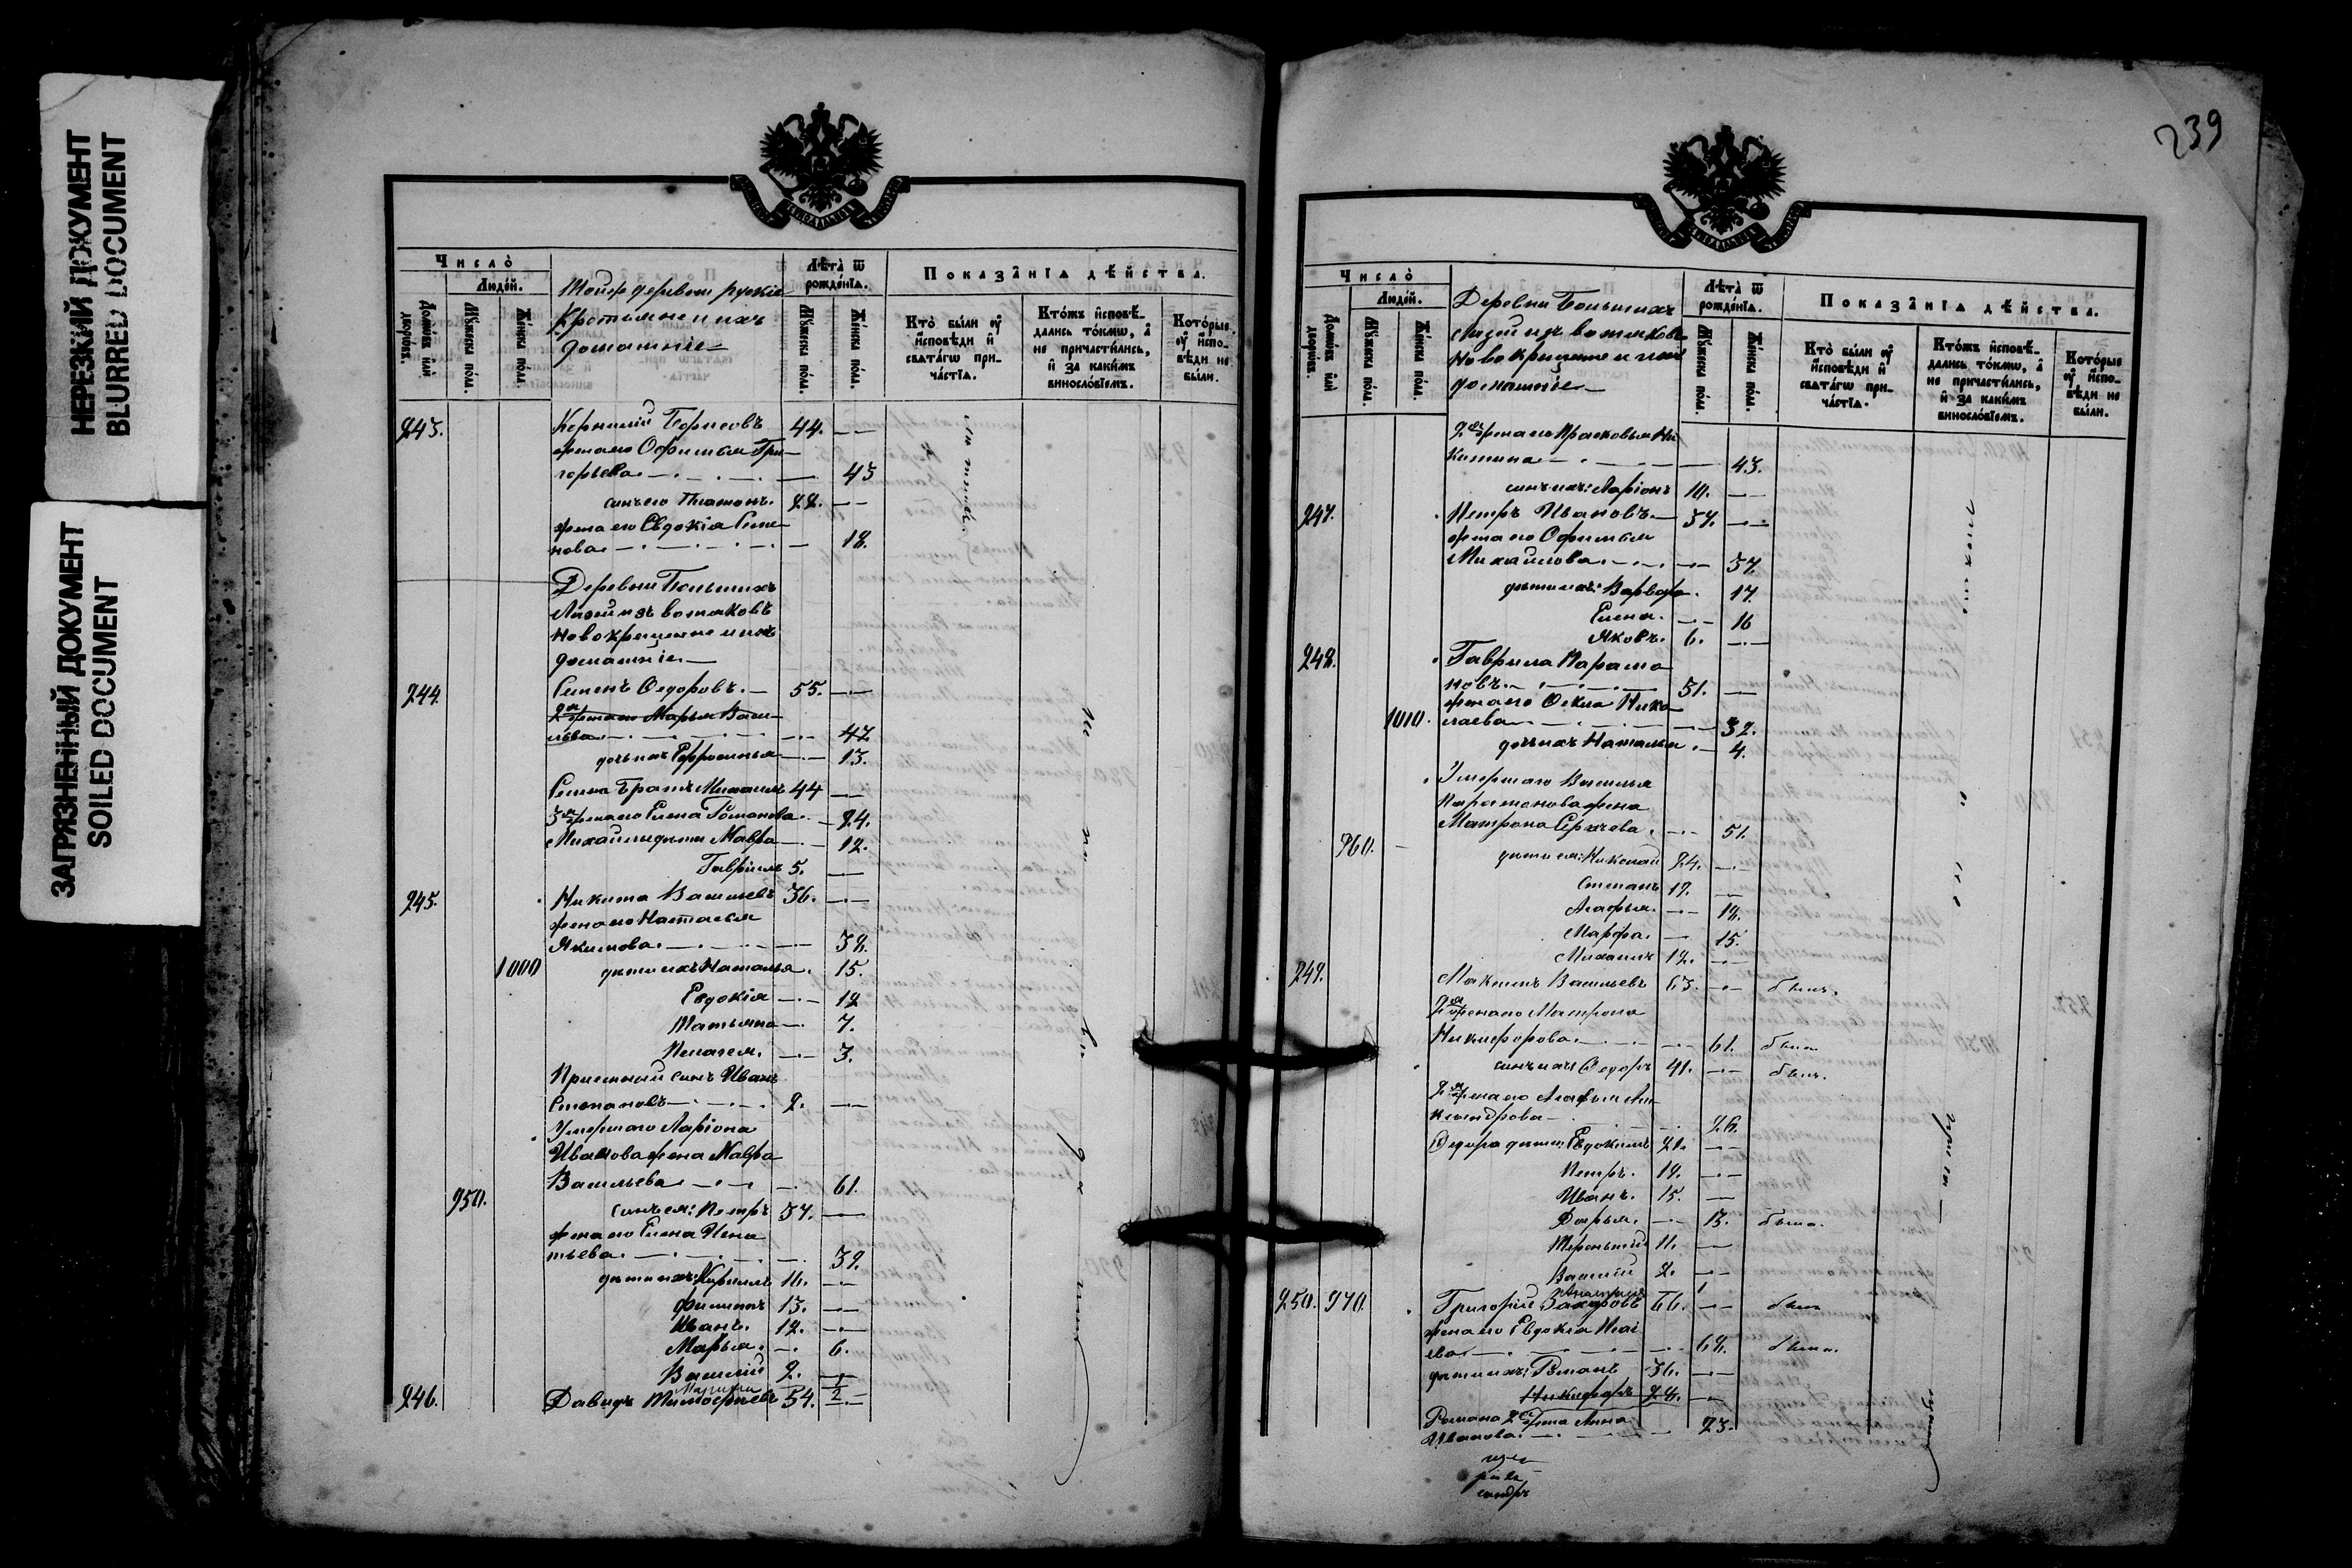 НЕРЕЗКИЙ ДОКУМЕНТ
BLURRED DOCUMENT
ЗАГРЯЗНЕННЫЙ ДОКУМЕНТ
SOILED DOCUMENT
Число̀
Людей.
Домѡвъ или дворовъ.
Мꙋжеска полꙋ.
Женска полꙋ.
Тойже деревни рускіе
Крестьяне и ихъ
домашніе
Лѣта̀ ѿ рожде́нїѧ.
Мꙋжеска полꙋ.
Женска полꙋ.
Показа́нїѧ дѣ́йства.
Кто̀ бы́ли ᲂу҆ и҆сповѣди и҆ свѧта́гѡ при-ча́стїѧ.
Кто́жъ и҆сповѣ́-дались то́кмѡ, а҆ не причасти́лись, и҆ за каки́мъ виносло́вїемъ.
Кото́рые ᲂу҆ и҆спо-вѣди не бы́ли.
243. Корнилій Борисовъ 44.
жена его Офимья Гри-
горьева 45
сынъ его Платонъ. 22.
жена его Евдокія Семе-
нова 18.
Деревни Большихъ
Лизей изъ вотяковъ
новокрещенне и ихъ
домашніе
244. Семенъ Ѳедоровъ. 55.
2я жена его Марья Васи-
льева 47.
дочь ихъ Ефросинья 13.
Семена братъ Михаилъ 44
3я жена его Елена Романова. 24.
Михаила дѣти Мавра 12.
Гавріилъ 5.
245. Никита Васильевъ 36.
жена его Настасья
Якимова. 38.
1000 дѣти ихъ: Наталья. 15.
Евдокія 12
Татьяна 7.
Пелагея. 3.
Пріемный сынъ Иванъ
Степановъ 2.
Умершаго Ларіона
Иванова жена Мавра
Васильева 61.
950. сынъ ея: Петръ 37.
жена его Елена Игна
тьева. 39.
дѣти ихъ: Кирилъ 16.
Филипъ 13.
Иванъ. 12.
Марья. 6.
Василій 2.
246. Давидъ Тимофеевъ 54.
239
Число̀
Людей.
Домѡвъ или дворовъ.
Мꙋжеска полꙋ.
Женска полꙋ.
Деревни Большихъ
Лизей изъ вотяковъ
Новокрещенне и ихъ
домашніе
Лѣта̀ ѿ рожде́нїѧ.
Мꙋжеска полꙋ.
Женска полꙋ.
Показа́нїѧ дѣ́йства.
Кто̀ бы́ли ᲂу҆ и҆сповѣди и҆ свѧта́гѡ при-ча́стїѧ.
Кто́жъ и҆сповѣ́-дались то́кмѡ, а҆ не причасти́лись, и҆ за каки́мъ виносло́вїемъ.
Кото́рые ᲂу҆ и҆спо-вѣди не бы́ли.
2я жена его Прасковья Ни
китина 43.
сынъ ихъ: Ларіонъ 10.
247. Петръ Ивановъ. 57.
жена его Офимья
Михайлова. 57.
дѣти ихъ: Варвара. 17.
Елена. 16
Яковъ. 6.
248. Гаврила Парамо
новъ. 51.
жена его Ѳекла Нико
1010. лаева 32.
дочь ихъ Наталья. 4.
Умершаго Василья
Парамонова жена
Матрона Сергеева. 51.
960. дѣти ея: Николай 24.
Степанъ 19.
Агафья. 18.
Марфа. 15.
Михаилъ 12.
249. Максимъ Васильевъ 63. былъ.
2я жена его Матрона
Никифорова. 61. была
сынъ ихъ: Ѳедоръ 41. былъ.
2я жена его Агафья Але
ксандрова 26.
Ѳедора дѣти: Евдокимъ 21.
Петръ. 19.
Иванъ. 15.
Дарья. 13. была.
Терентій 11.
Василій 2.
250. 970. Григорій Захаровъ 66. былъ
жена его Евдокія Исае
ева 68. была.
дѣти ихъ: Романъ 36.
Никифоръ 24.
Романа 2я жена Анна
Иванова. 23.